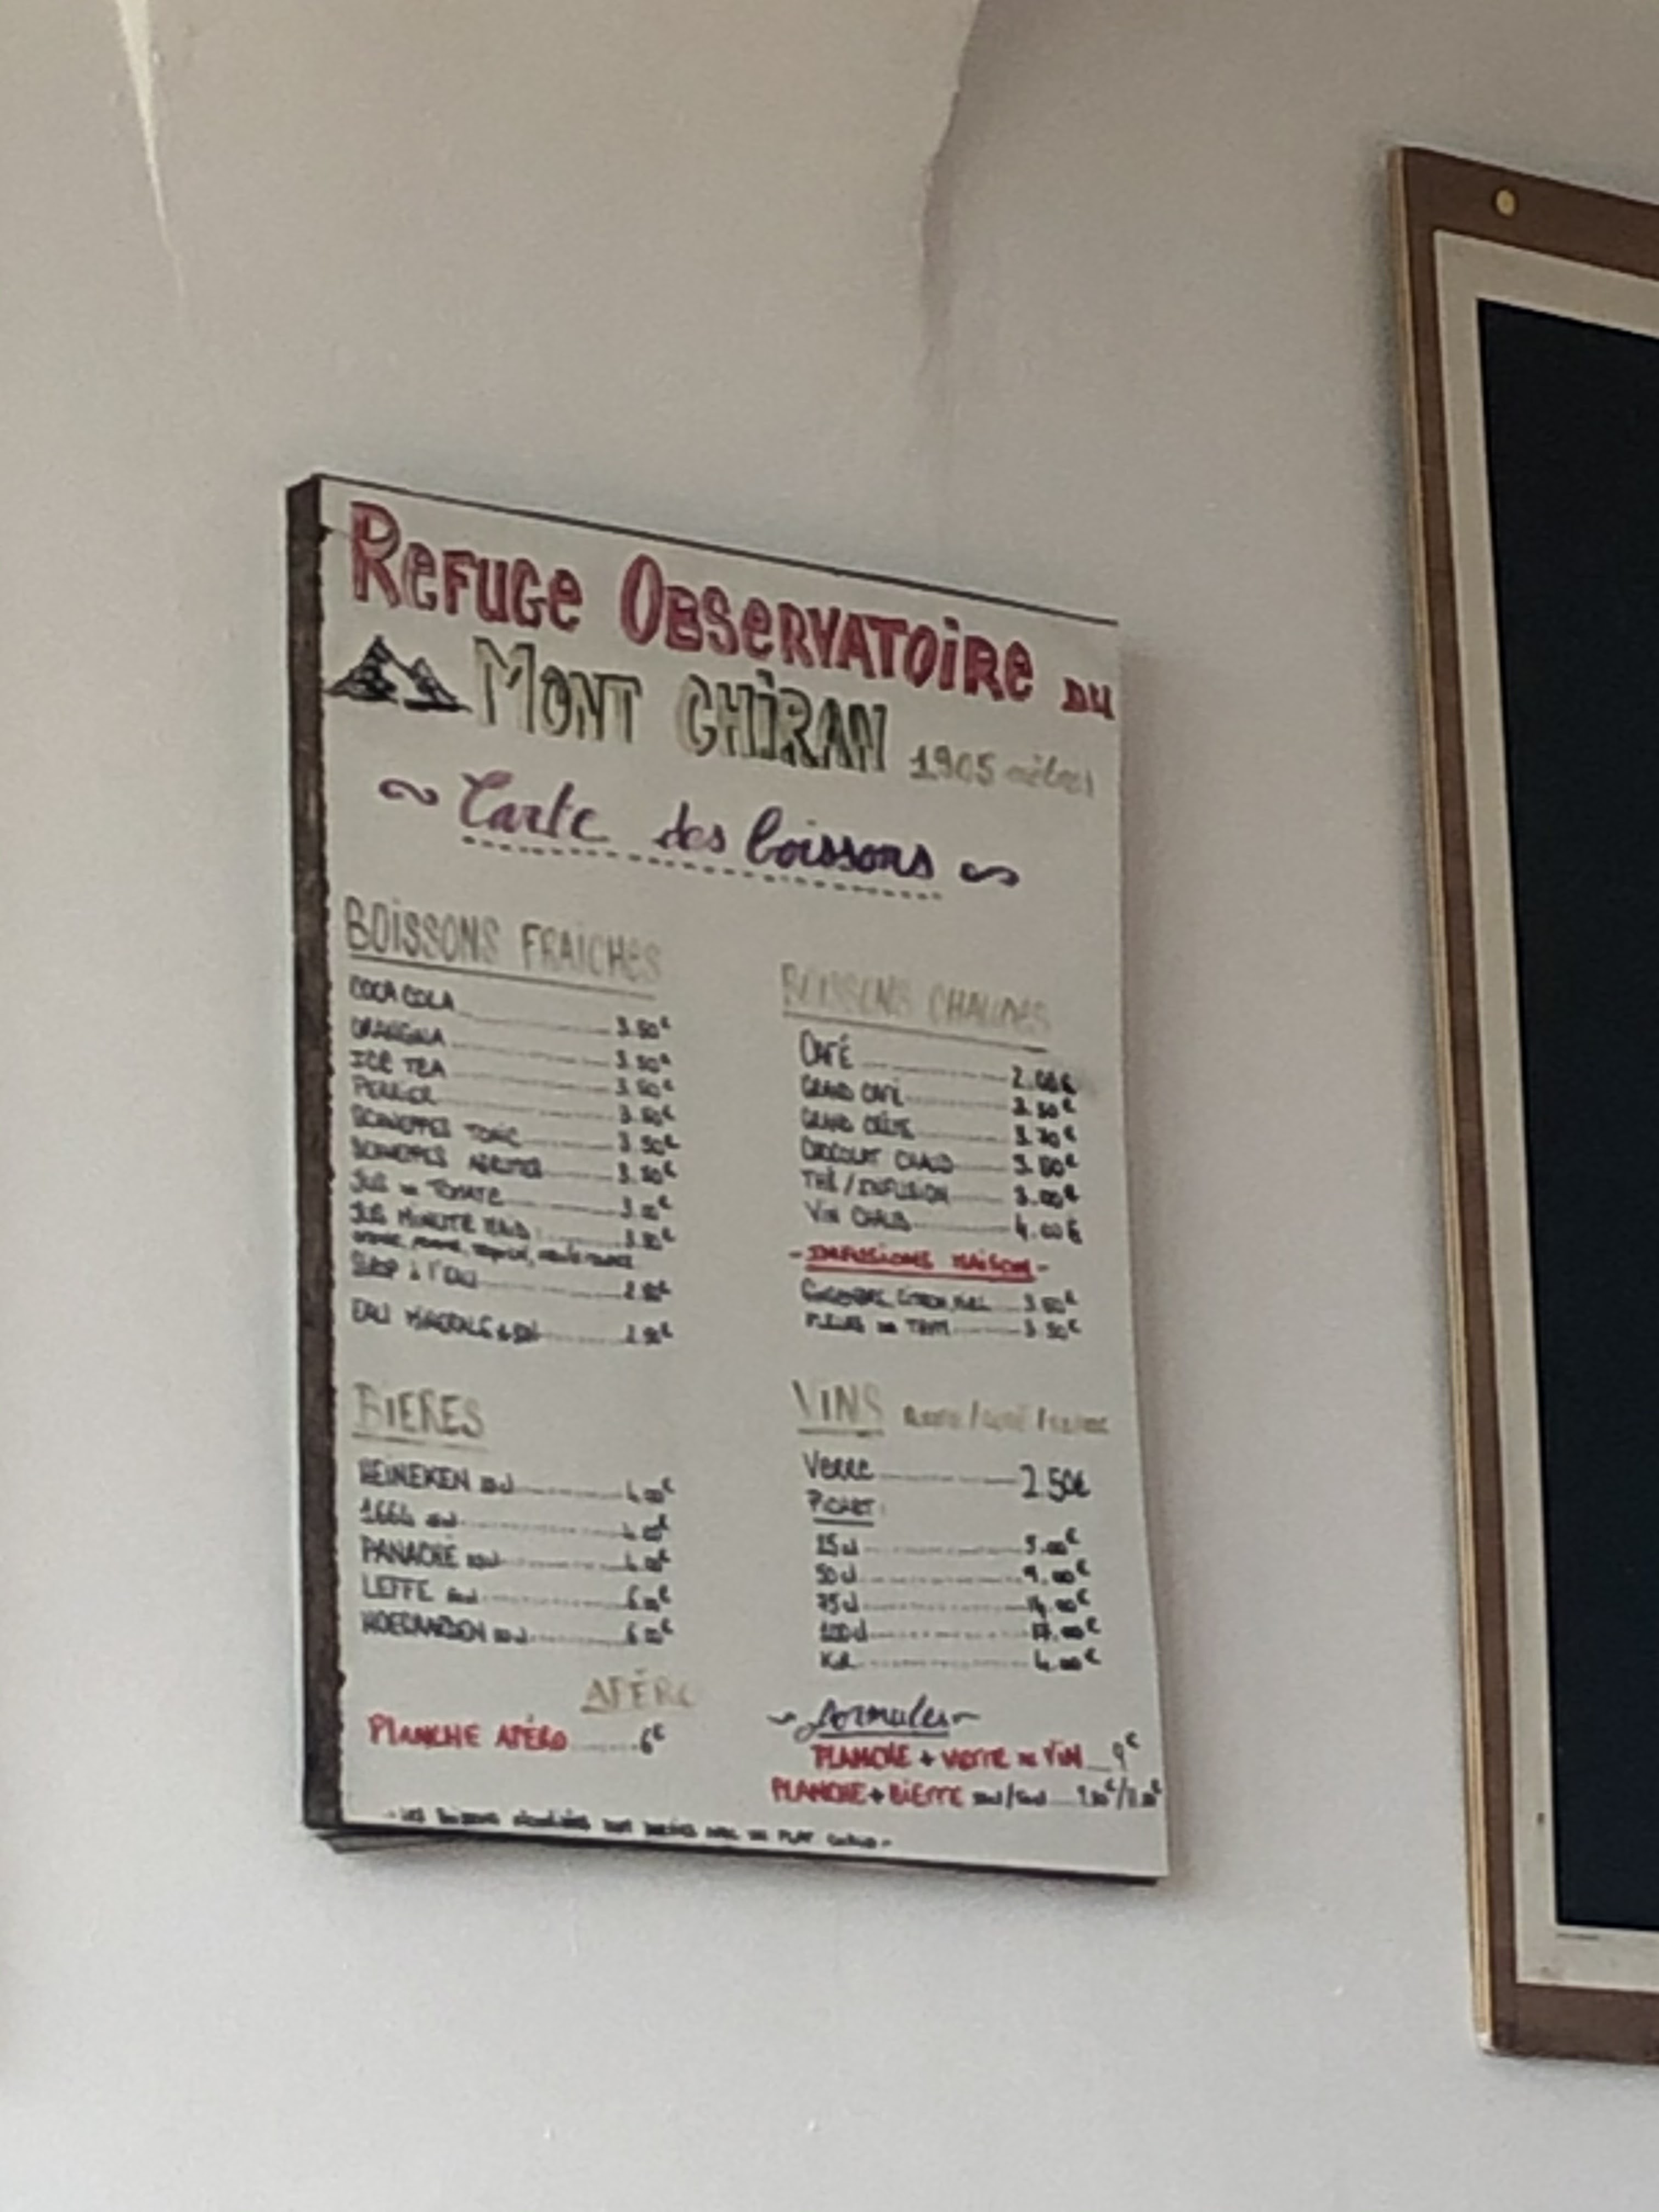 Refuge Observatoire du
Mont Chiran 1905 mètres
~ Carte des boissons ~
Boissons Fraiches
Coca Cola 3.50€
Orangina 3.50€
Ice Tea 3.50€
Perrier 3.50€
Schweppes Tonic 3.50€
Schweppes Agrumes 3.50€
Jus de Tomate
Jus Minute Maid :
Sirop à l'eau
Eau Minérale
Bieres
Heineken 4.00€
1664 4.00€
Panaché 4.00€
Leffe 6.00€
Hoegaarden 6.00€
Apéro
Planche Apéro 6€
Boissons Chaudes
Café 2.00€
Grand Café 3.50€
Grand Crème
Chocolat Chaud 3.50€
Thé / Infusion 3.00€
Vin Chaud 4.00€
- Infusions Maison -
Gingembre, Citron, Miel 3.50€
Fleurs de Thym 3.50€
Vins
Verre 2.50€
Pichet :
25cl 5.00€
50cl 9.00€
75cl 14.00€
100cl 17.00€
Kir 4.00€
~ formules ~
Planche + Verre de Vin 9€
Planche + Bierre